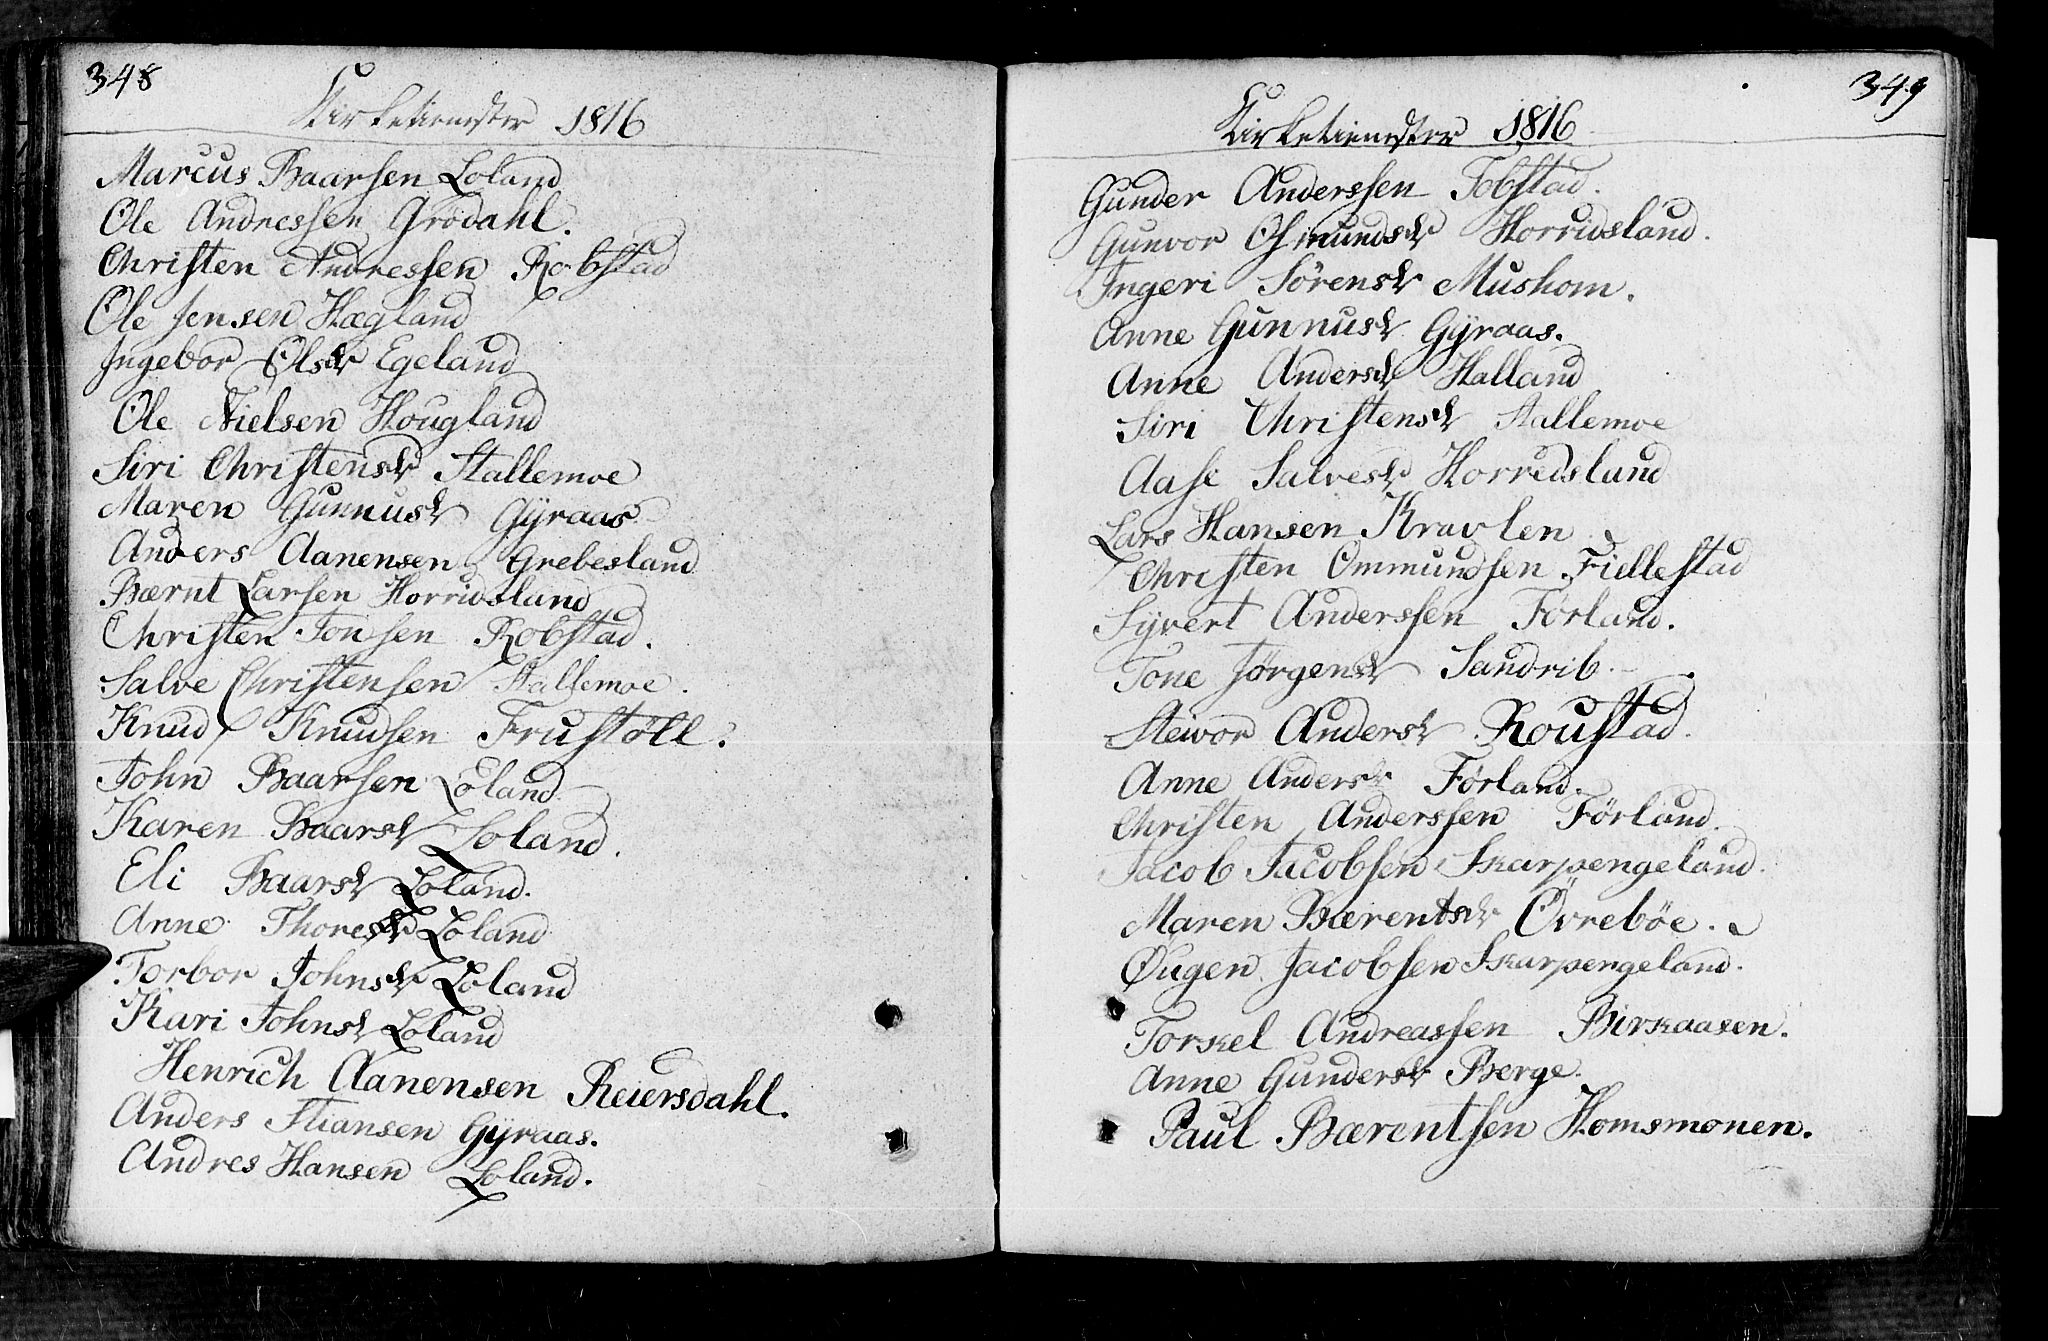 348
Kirketienester 1816
Marcus Baarsen Loland
Ole Andressen Grödahl.
Christen Andressen Robstad
Ole Jensen Hægland
Ingebor Olsdr Egeland
Ole Nielsen Hougland
Siri Christensdr Stallemoe
Maren Gunnusdr Gÿraas
Anders Aanensen Grebesland
Bærnt Larsen Horridsland
Christen Jonsen Robstad.
Salve Christensen Stallemoe.
Knud Knudsen Frustöll.
John Baarsen Loland
Karen Baarsdr Loland.
Eli Baarsdr Loland.
Anne Thoresdr Loland
Torbor Johnsdr Loland
Kari Johnsdr Loland
Henrich Aanensen Reiersdahl.
Anders Stiansen Gÿraas.
Andres Hansen Loland.
349
Kirketienester 1816
Gunder Anderssen Tobstad.
Gunvor Osmundsdr Horridsland.
Ingeri Sörensdr Mushom.
Anne Gunnusdr Gÿraas.
Anne Andersdr Halland
Siri Christensdr Stallemoe
Aase Salvesdr Horridsland
Lars Hansen Kravlen
Christen Ommundsen Fiellestad
Sÿvert Anderssen Förland.
Tone Jörgensdr Sandrib.
Steivor Andersdr Roustad.
Anne Andersdr Förland.
Christen Anderssen Förland
Jacob Jacobsen Skarpengeland.
Maren Bærentsdr Övreböe.
Øugen Jacobsen Skarpengeland.
Torkel Andreassen Birkaasen.
Anne Gundersdr Berge.
Paul Bærentsen Homsmonen.